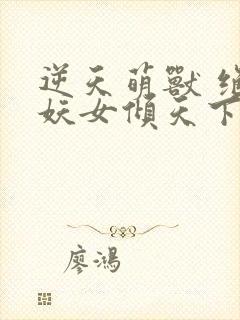 逆天萌獸
妖女傾天下
廖鴻